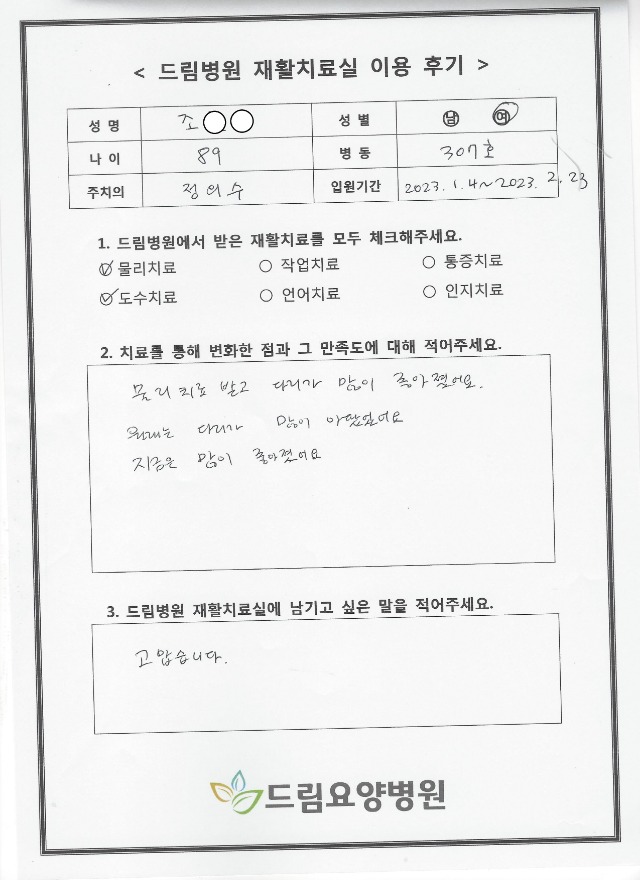 < 드림병원 재활치료실 이용 후기 >
성 명 조○○ 성 별 남 여
나 이 89 병 동 307호
주치의 정의수 입원기간 2023. 1. 4~2023. 2. 23
1. 드림병원에서 받은 재활치료를 모두 체크해주세요.
물리치료 ○ 작업치료 ○ 통증치료
도수치료 ○ 언어치료 ○ 인지치료
2. 치료를 통해 변화한 점과 그 만족도에 대해 적어주세요.
물리치료 받고 다리가 많이 좋아졌어요.
원래는 다리가 많이 아팠었어요
지금은 많이 좋아졌어요
3. 드림병원 재활치료실에 남기고 싶은 말을 적어주세요.
고맙습니다.
드림요양병원